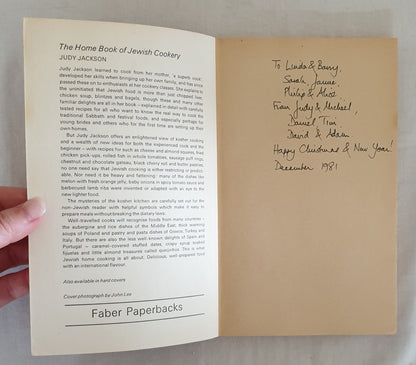 The Home Book of Jewish Cookery
JUDY JACKSON
Judy Jackson learned to cook from her mother, 'a superb cook',
developed her skills when bringing up her own family, and has since
passed these on to enthusiasts at her cookery classes. She explains to
the uninitiated that Jewish food is more than just chopped liver,
chicken soup, blintzes and bagels, though these and many other
familiar delights are all in her book—explained with carefully
tested recipes for all who want to know the real way to cook the
traditional Sabbath and festival foods, and especially perhaps for
young brides and others who for the first time are setting up their
own homes.
But Judy Jackson offers an enlightened view of kosher cooking
and a wealth of new ideas for both the experienced cook and the
beginner – with recipes for such as cheese and almond soufflé,
chicken pick-ups, rolled fish in whole tomatoes, sausage puff rings,
chestnut and chocolate gateau, black cherry and butter pastries,
no one need say that Jewish cooking is either restricting or predict-
able. Nor need it be heavy and fattening: many of the dishes like
melon with fresh orange jelly, baby onions in spicy tomato sauce and
barbecued lamb ribs were invented or adapted with an eye to the
new lighter food.
The mysteries of the kosher kitchen are carefully set out for the
non-Jewish reader with helpful symbols which make it easy to
prepare meals without breaking the dietary laws.
Well-travelled cooks will recognise foods from many countries –
the aubergine and rice dishes of the Middle East, thick warming
soups of Poland and pastry and pasta dishes of Greece, Turkey and
Italy. But there are also the less well known delights of Spain and
Portugal – caramel-covered stuffed dates, crispy syrup soaked
fijuelas and little almond treasures called quesjinhos. This is what
Jewish home cooking is all about: Delicious, well-prepared food
with an international flavour.
Also available in hard covers
Cover photograph by John Lee
Faber Paperbacks
To Linda & Barry,
Sarah, Jamie,
Philip & Alice
From Judy & Michael,
Daniel, Tim,
David & Adam
Happy Christmas & New Year!
December 1981